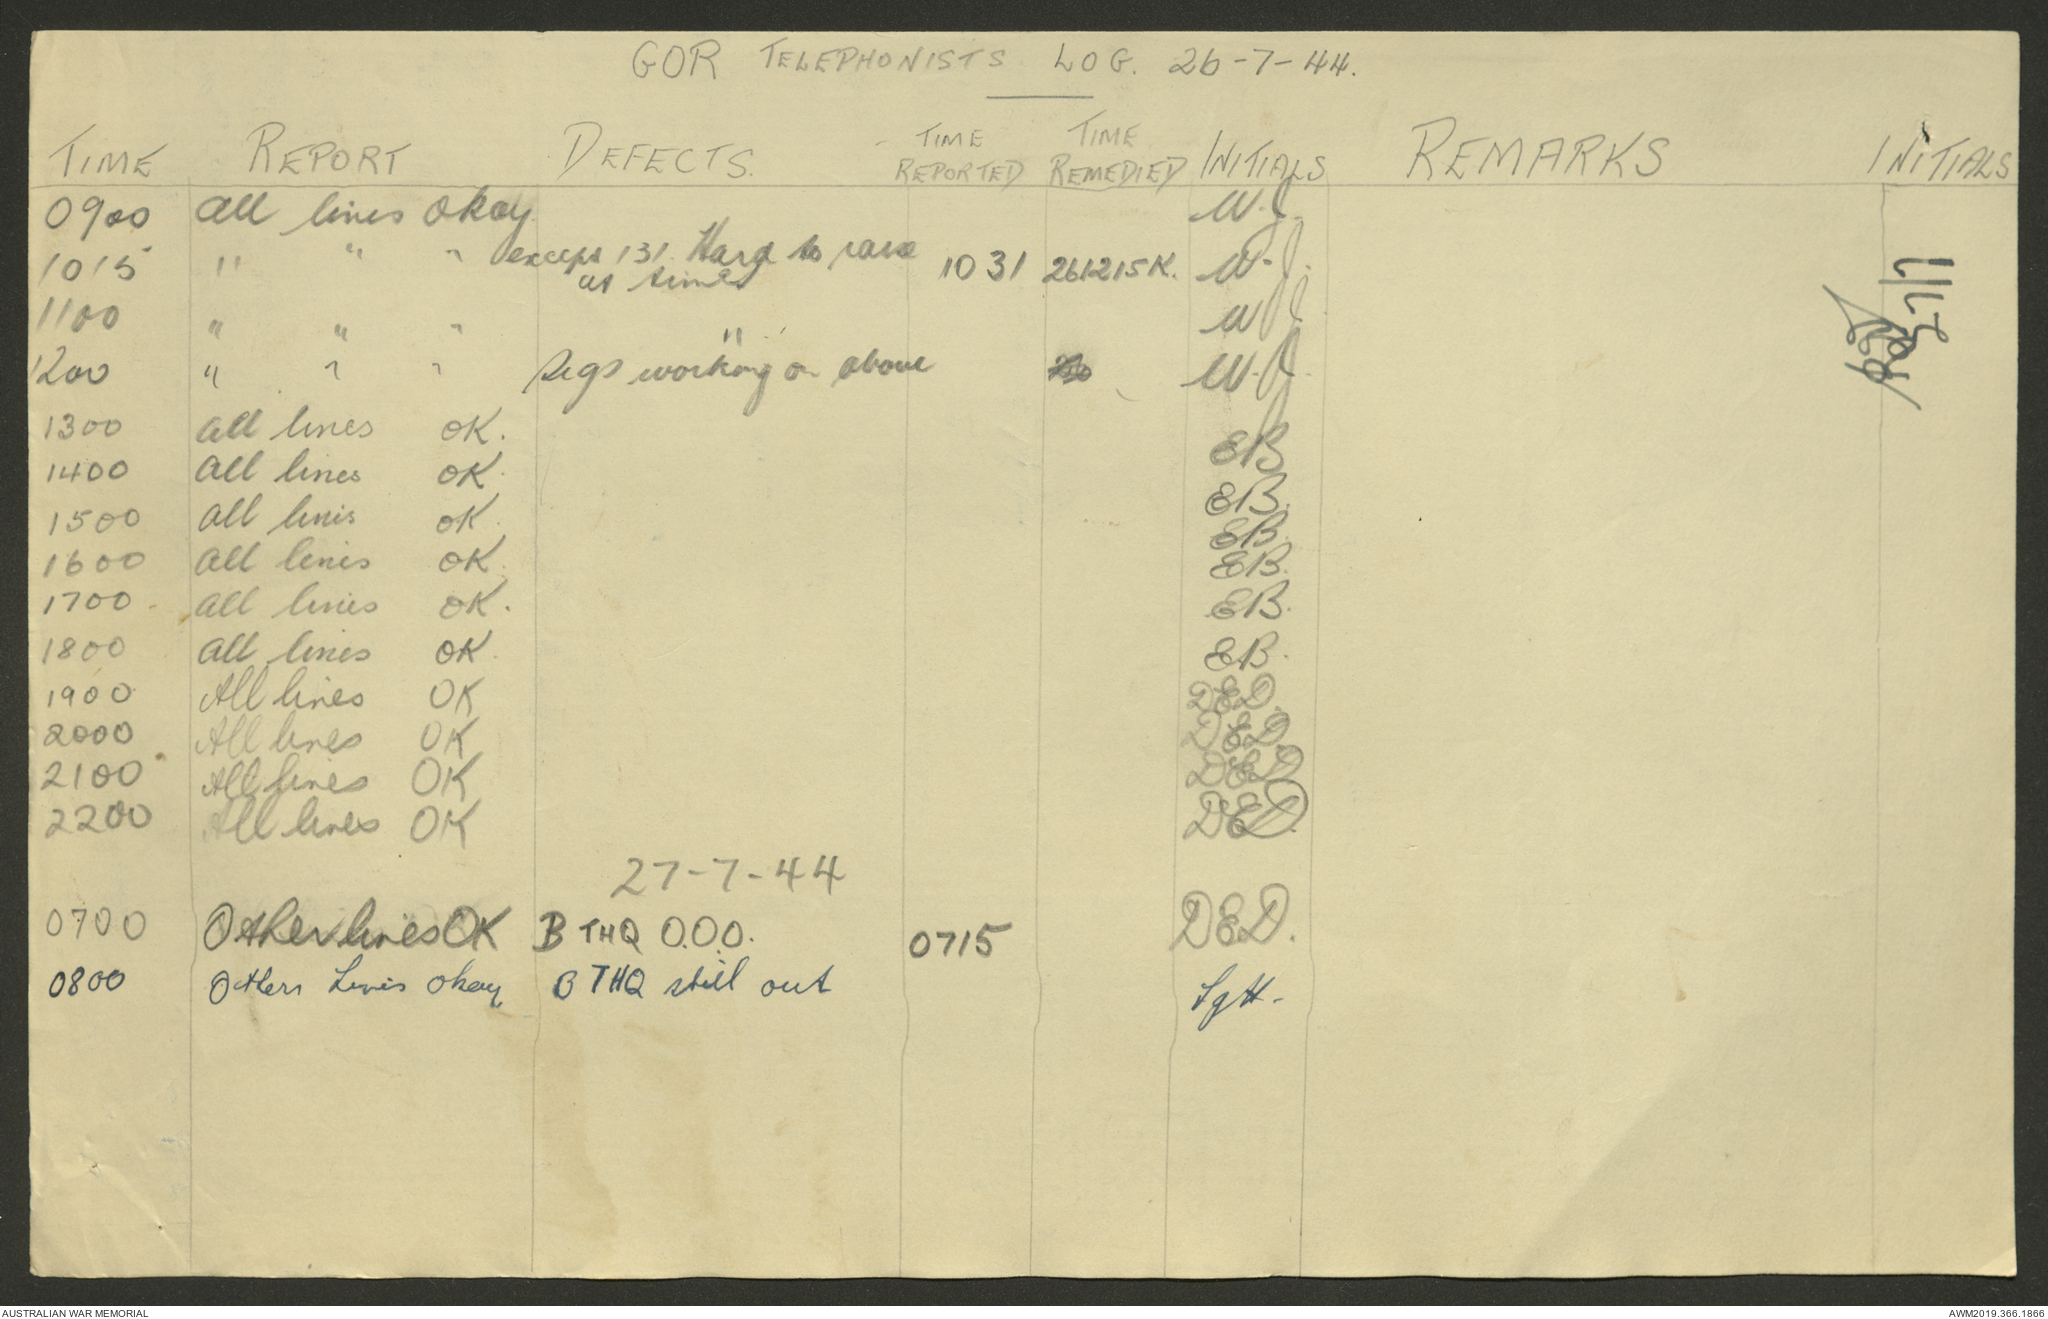 GOR TELEPHONISTS LOG. 26-7-44.
TIME REPORT DEFECTS. TIME REPORTED TIME REMEDIED INITIALS REMARKS INITIALS
0900 all lines okay W.J.
1015 " " " except 131. Hard to raise 1031 261215K. W.J.
at times
1100 " " " " W.J.
1200 " " " Sigs working on above W.J.
1300 all lines OK. EB
1400 all lines OK. EB.
1500 all lines OK. EB.
1600 all lines OK. EB.
1700 all lines OK. EB.
1800 all lines OK. EB.
1900 All lines OK DED.
2000 All lines OK DED.
2100 All lines OK DED
2200 All lines OK DED.
27-7-44
0700 Other lines OK B THQ O.O.O. 0715 DED.
0800 Others Lines okay B THQ still out
27/7
AUSTRALIAN WAR MEMORIAL AWM2019.366.1866